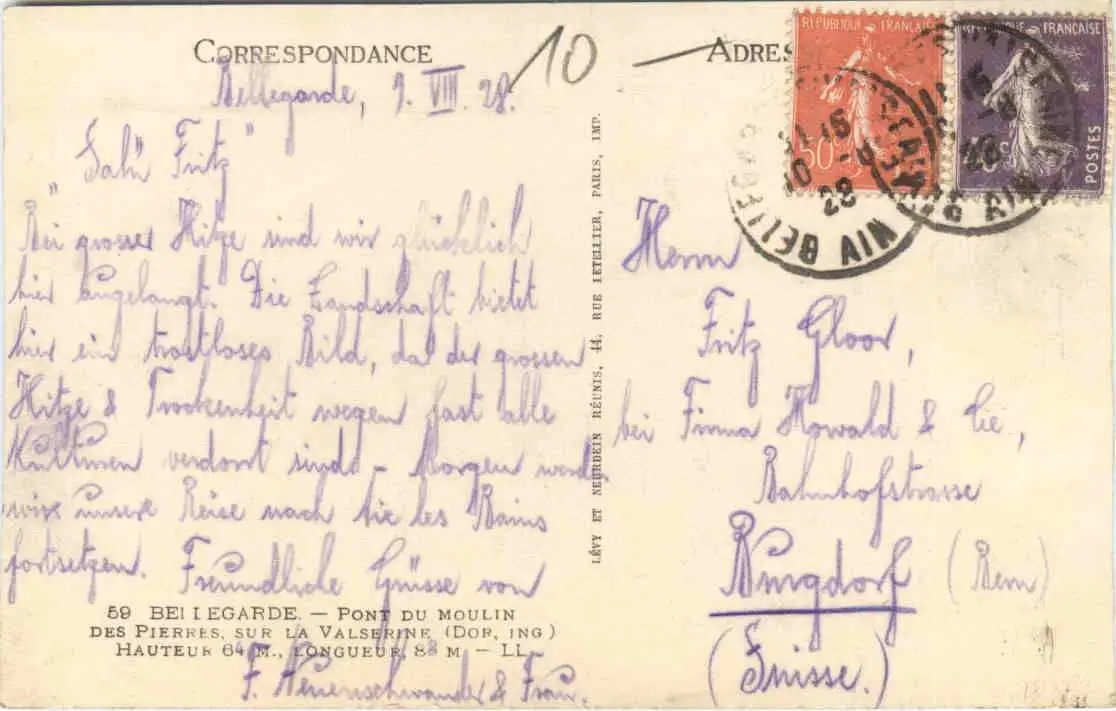 CORRESPONDANCE
10
Bellegarde, 9. VIII. 28.
" Fritz "
Bei grosser Hitze sind wir glücklich
hier angelangt. Die Landschaft bietet
hier ein trostloses Bild, da der grossen
Hitze & Trockenheit wegen fast alle
Kulturen verdorrt sind. - Morgen werden
wir unsere Reise nach Aix les Bains
fortsetzen. Freundliche Grüsse von
F. Neuenschwander & Frau.
59 BELLEGARDE. — PONT DU MOULIN
DES PIERRES, SUR LA VALSERINE (DOR, ING)
HAUTEUR 64 M., LONGUEUR, 88 M — LL
LÉVY ET NEURDEIN RÉUNIS, 44, RUE LETELLIER, PARIS, IMP.
RÉPUBLIQUE FRANÇAISE
50c
RÉPUBLIQUE FRANÇAISE
POSTES
BELLEGARDE AIN
28
AIN
Herrn
Fritz Gloor,
bei Firma Howald & Cie,
Bahnhofstrasse
Burgdorf (Bern)
(Suisse.)